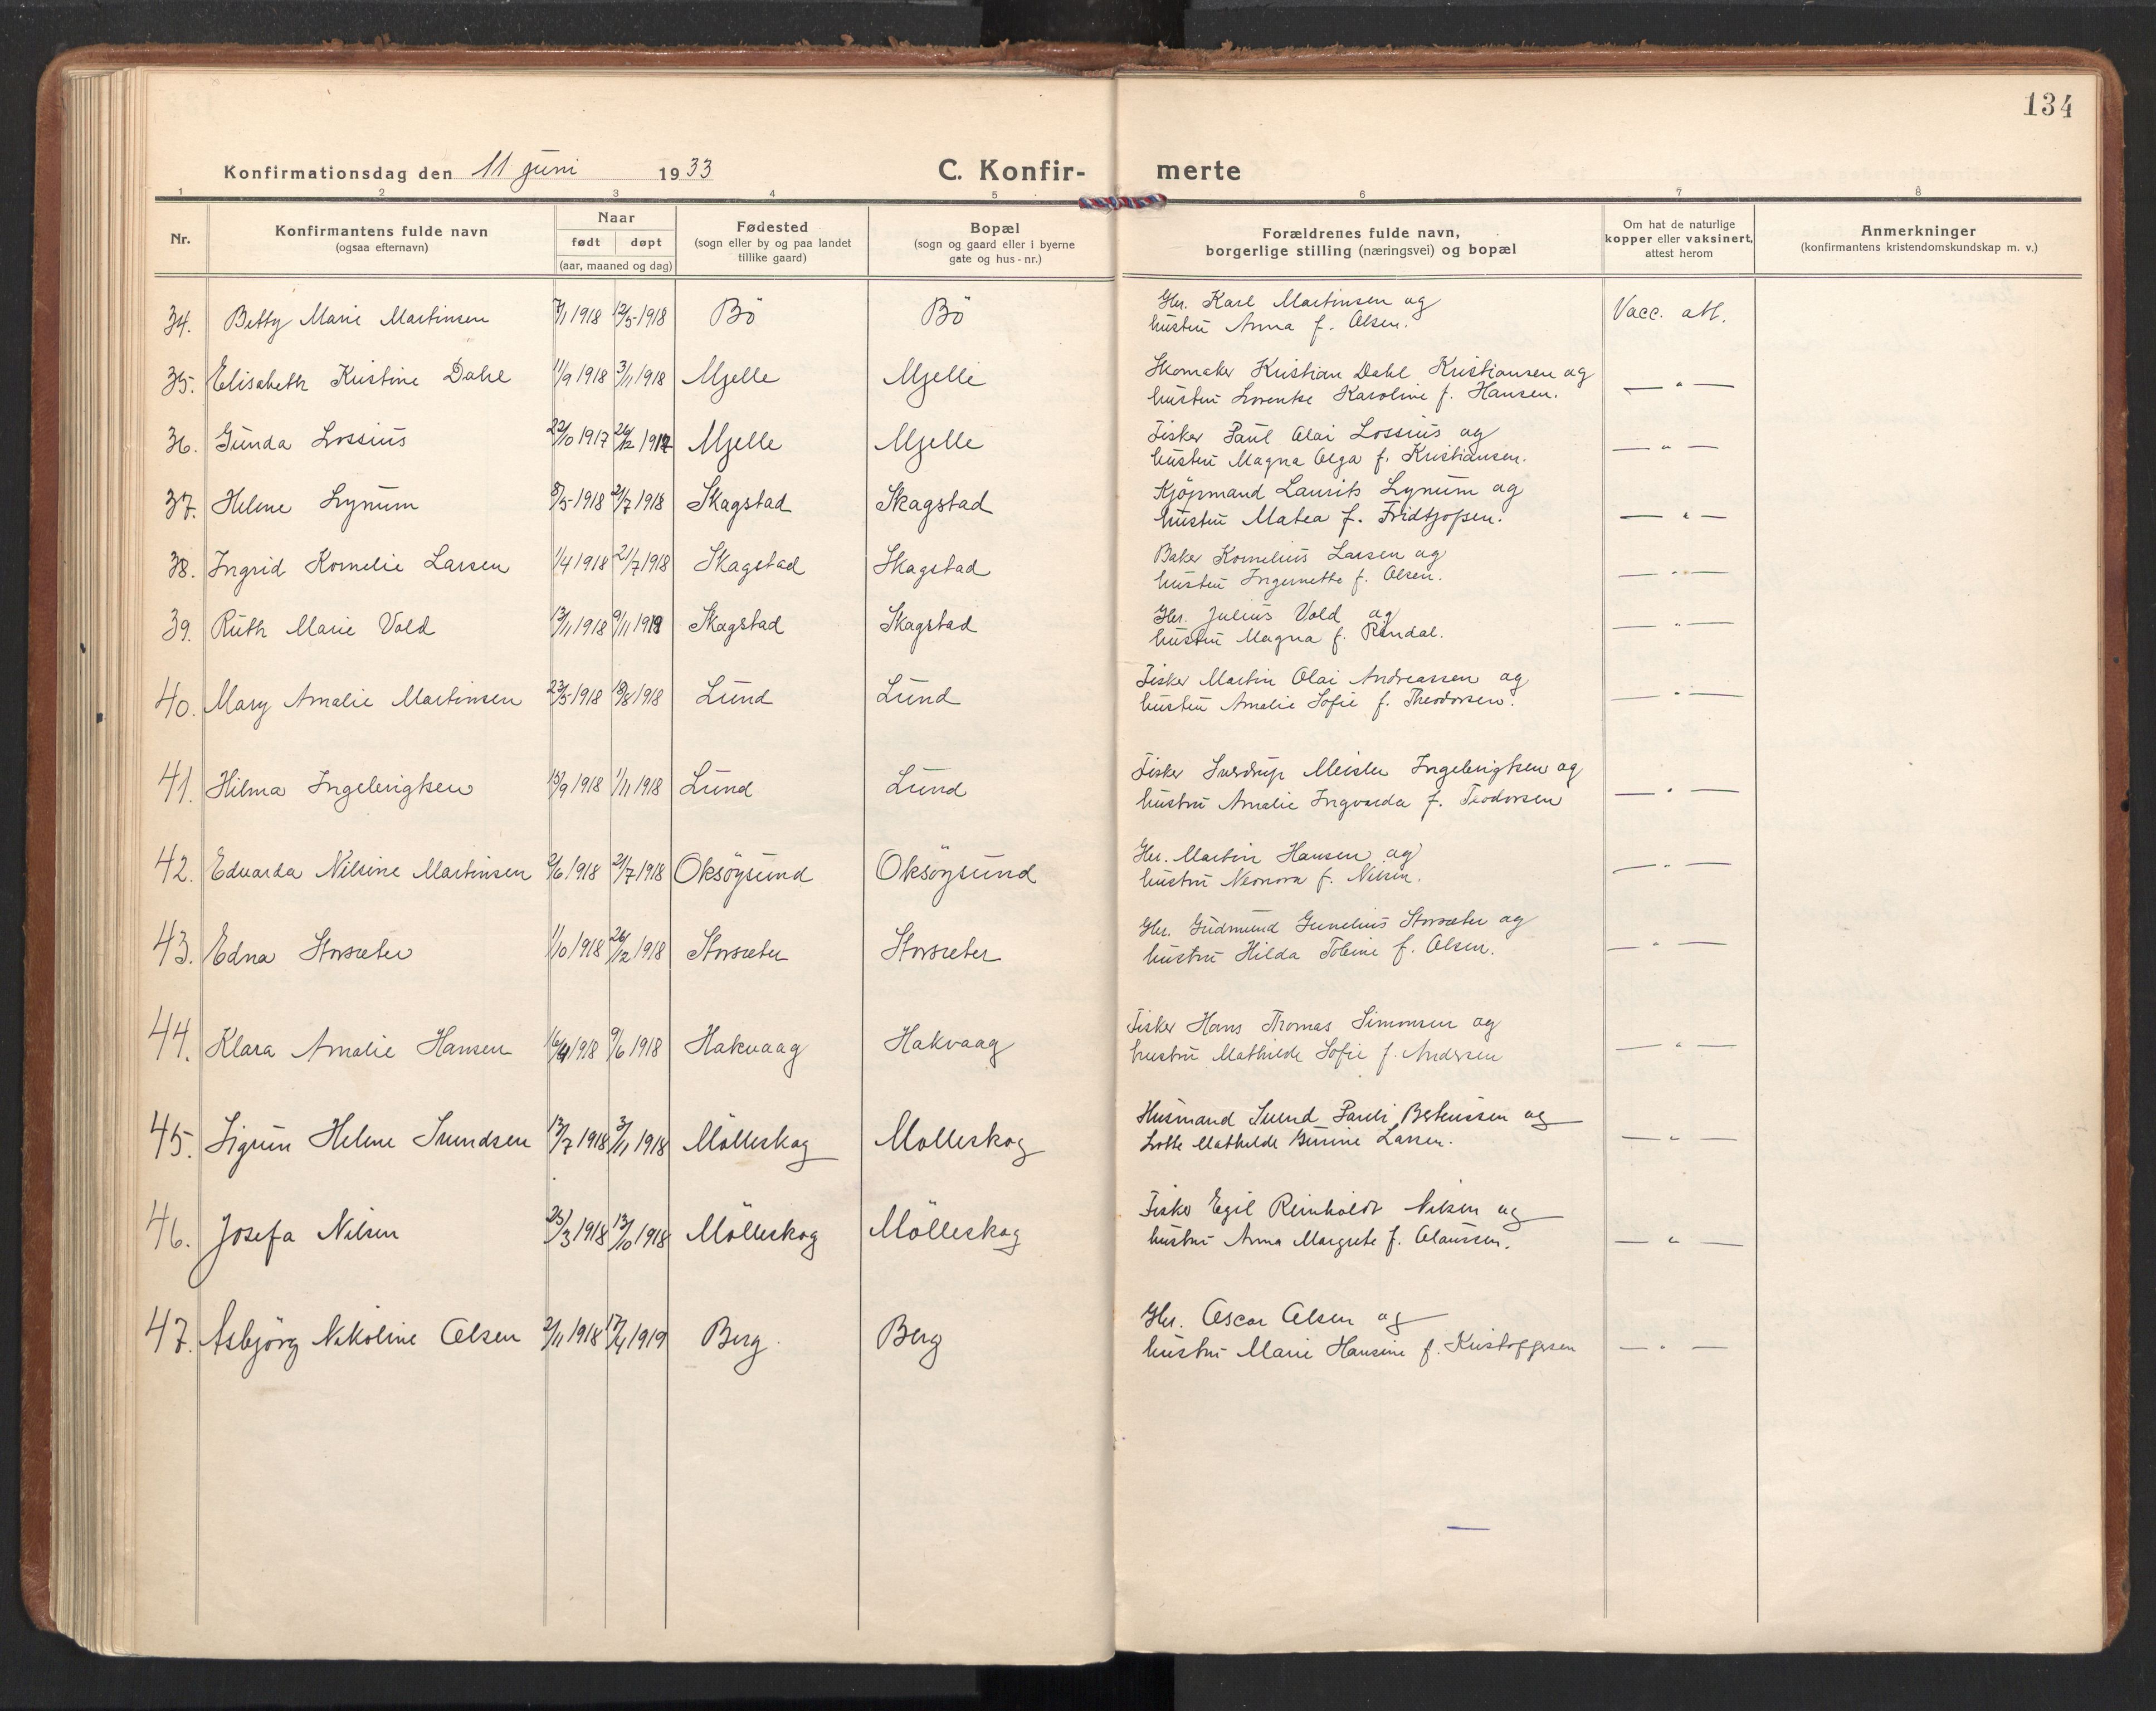 134
Konfirmationsdag den 11 juni 1933
C. Konfir-merte
1 2 3 4 5 6 7 8
Nr.
Konfirmantens fulde navn
(ogsaa efternavn)
Naar
født døpt
(aar, maaned og dag)
Fødested
(sogn eller by og paa landet
tillike gaard)
Bopæl
(sogn og gaard eller i byerne
gate og hus-nr.)
Forældrenes fulde navn,
borgerlige stilling (næringsvei) og bopæl
Om hat de naturlige
kopper eller vaksinert,
attest herom
Anmerkninger
(konfirmantens kristendomskundskap m. v.)
34. Betty Marie Martinsen 7/1 1918 12/5 1918 Bö Bö Gbr. Karl Martinsen og
hustru Anna f. Olsen. Vacc. att.
35. Elisabeth Kristine Dahl 11/9 1918 3/11 1918 Mjelle Mjelle Skomaker Kristian Dahl Kristiansen og
hustru Lorentse Karoline f. Hansen. — " —
36. Gunda Lossius 22/10 1917 26/12 1917 Mjelle Mjelle Fisker Paul Olai Lossius og
hustru Magna Olga f. Kristiansen. — " —
37. Helene Lynum 8/5 1918 21/7 1918 Skagstad Skagstad Kjöpmand Laurits Lynum og
hustru Matea f. Fridtjofsen. — " —
38. Ingrid Kornelie Larsen 1/4 1918 21/7 1918 Skagstad Skagstad Baker Kornelius Larsen og
hustru Ingernette f. Olsen. — " —
39. Ruth Marie Vold 13/11 1918 9/11 1919 Skagstad Skagstad Gbr. Julius Vold og
hustru Magna f. Rendal. — " —
40. Mary Amalie Martinsen 23/5 1918 18/8 1918 Lund Lund Fisker Martin Olai Andreassen og
hustru Amalie Sofie f. Theodorsen. — " —
41. Hilma Ingebrigtsen 15/9 1918 1/11 1918 Lund Lund Fisker Sverdrup Meisler Ingebrigtsen og
hustru Amalie Ingvarda f. Teodorsen — " —
42. Edvarda Nilsine Martinsen 2/6 1918 21/7 1918 Oksöysund Oksöysund Gbr. Martin Hansen og
hustru Neonora f. Nilsen. — " —
43. Edna Storsæter 11/10 1918 26/12 1918 Storsæter Storsæter Gbr. Gudmund Gunelius Storsæter og
hustru Hilda Tobine f. Olsen. — " —
44. Klara Amalie Hansen 16/4 1918 9/6 1918 Hakvaag Hakvaag Fisker Hans Thomas Simonsen og
hustru Mathilde Sofie f. Andersen — " —
45. Sigrun Helene Svendsen 13/7 1918 3/11 1918 Mölleskog Mölleskog Husmand Svend Pareli Berteussen og
Lotte Mathilde Burine Larsen. — " —
46. Josefa Nilsen 25/3 1918 13/10 1918 Mölleskog Mölleskog Fisker Egil Reinholdt Nilsen og
hustru Anna Margrete f. Olaussen. — " —
47. Asbjörg Nikoline Olsen 2/11 1918 17/4 1919 Berg Berg Gbr. Oscar Olsen og
hustru Marie Hansine f. Kristoffersen — " —